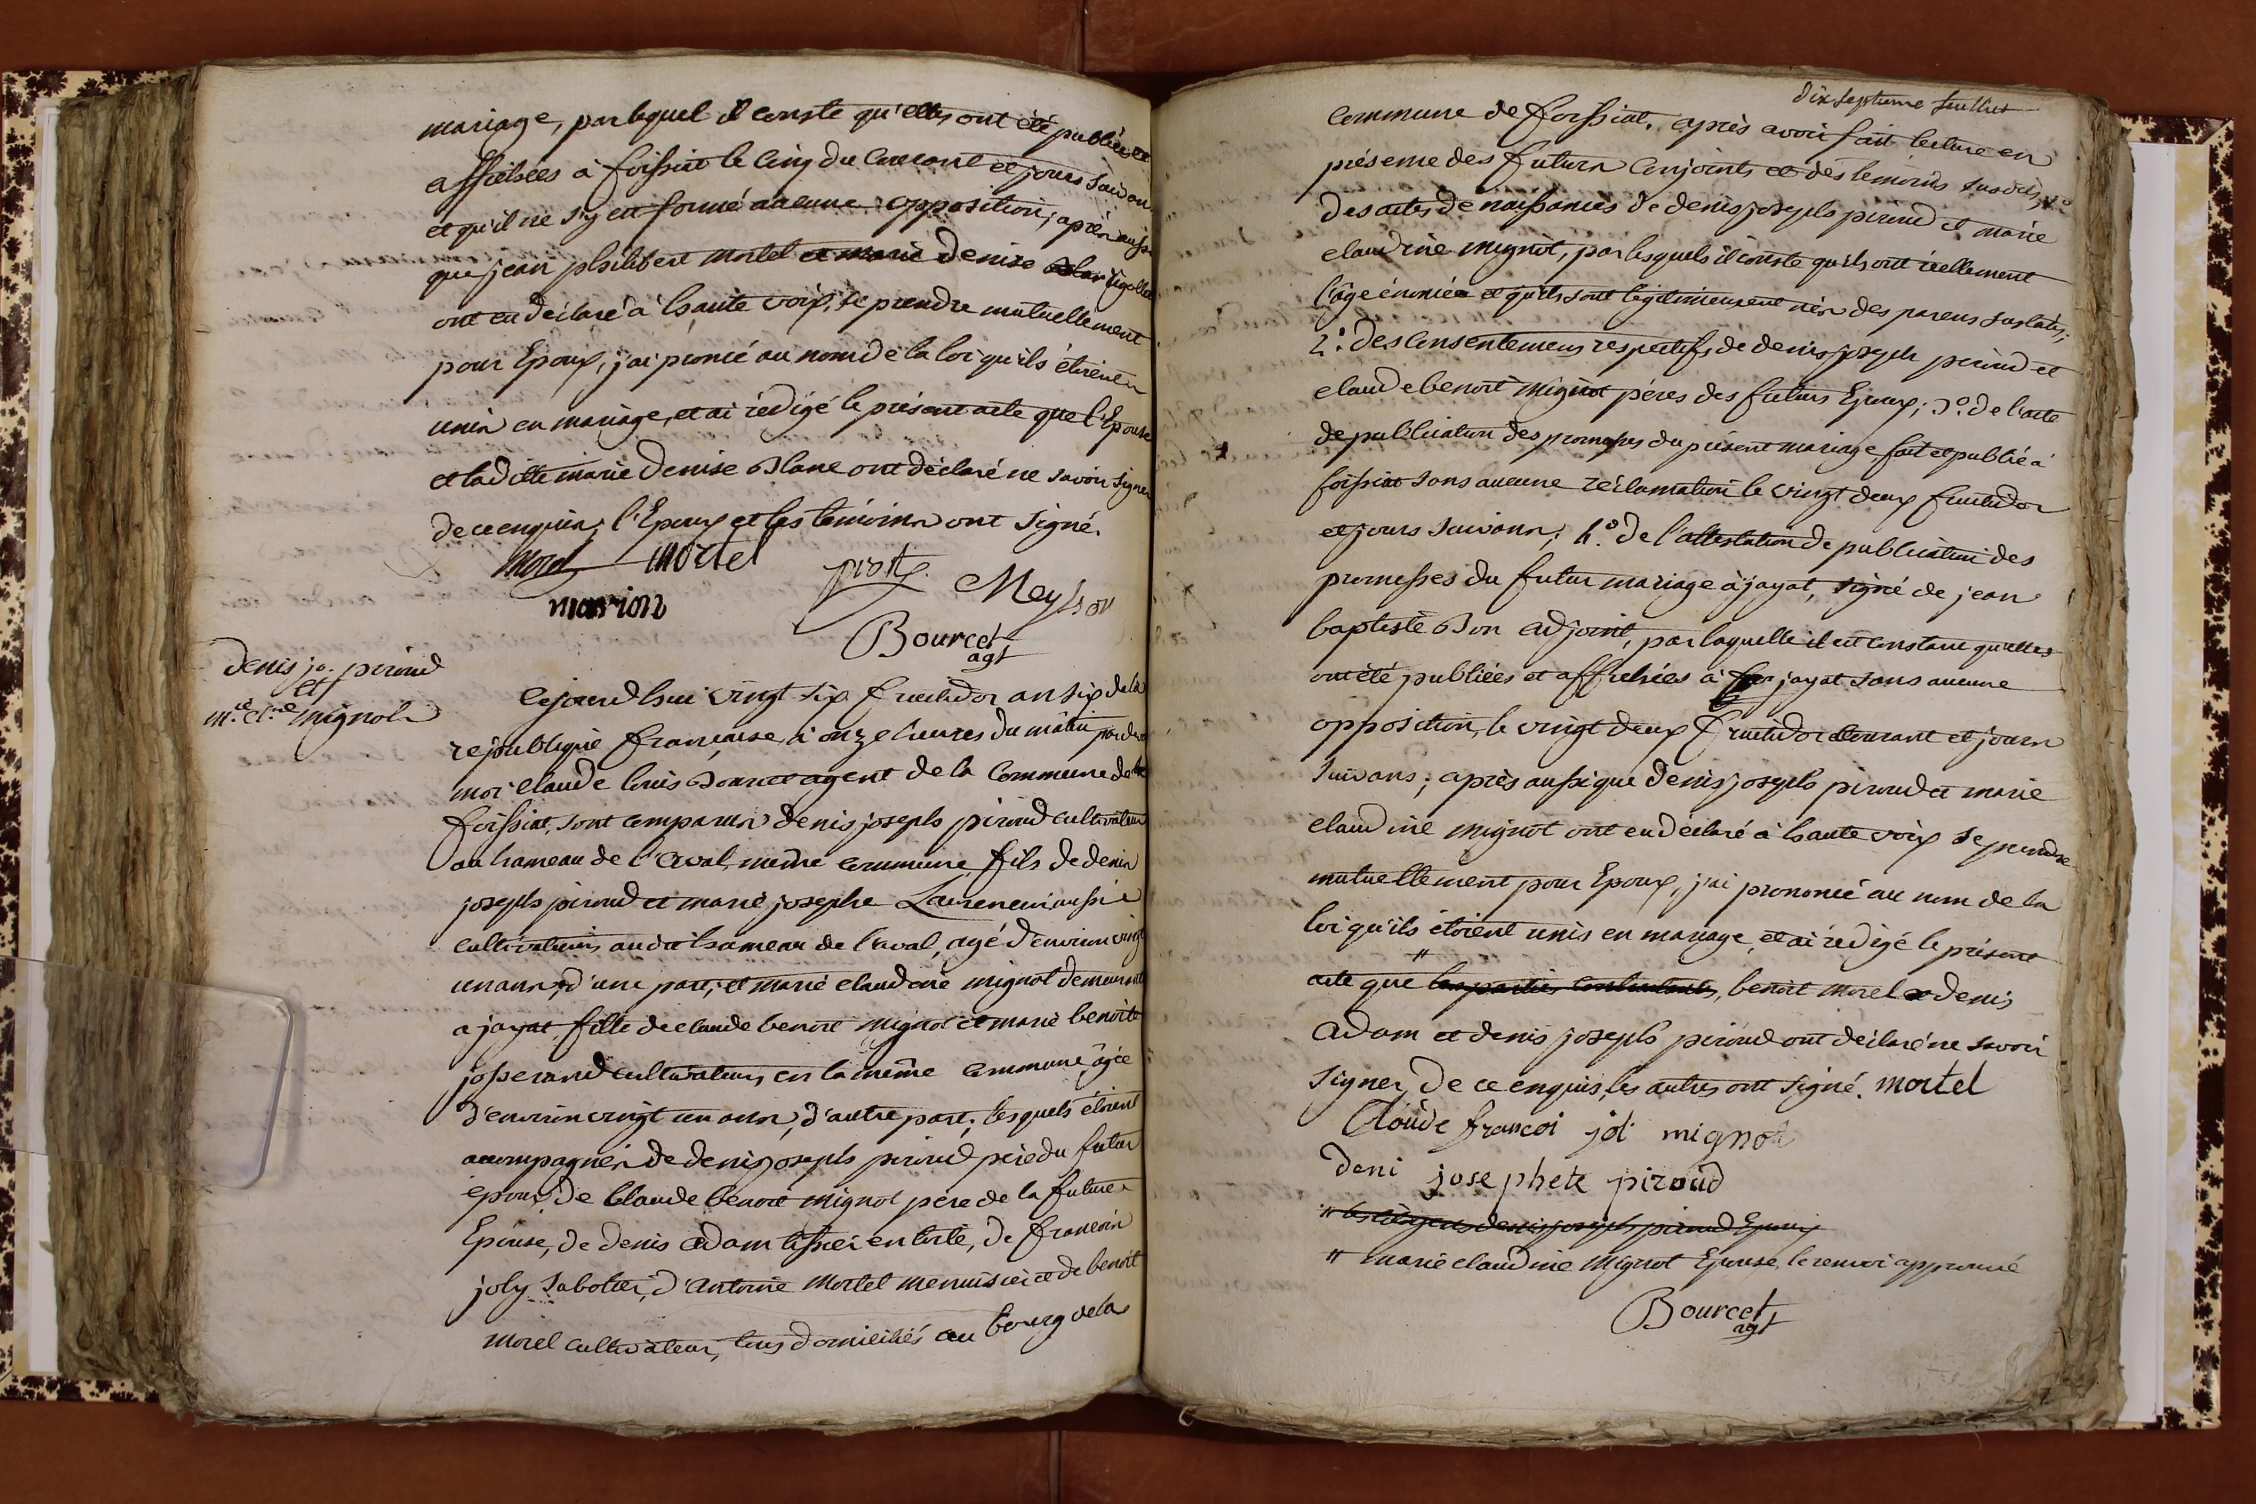 mariage, par lequel il conste qu'elles ont été publiées et
affichées à foissiat le cinq du courant et jours suivans
et qu'il ne s'y est formé aucune opposition; après aussi
que jean philibert mortel et marie denise
ont eu déclaré à haute voix, se prendre mutuellement
pour Epoux, j'ai prononcé au nom de la loi qu'ils étoient
unis en mariage, et ai rédigé le présent acte que l'Epouse
et ladite marie denise Blanc ont déclaré ne savoir signer
de ce enquis; l'Epoux et les témoins ont signé.
morel mortel
marion
Bourcet
agt
denis jo. piroud
et
m.ie cl.ne mignot
cejourd'hui vingt six fructidor an six de la
république française, à onze heures du matin, par devant
moi claude louis Bourcet agent de la commune de
foissiat, sont comparus denis joseph piroud cultivateur
au hameau de l'aval, même commune, fils de denis
joseph piroud et marie josephe aussi
cultivateurs audit hameau de l'aval, agé d'environ vingt
un ans, d'une part; et marie claudine mignot demeurante
a jayat, fille de claude benoit mignot et marie benoite
josserand cultivateurs en la même commune, âgée
d'environ vingt un ans, d'autre part; lesquels étoient
accompagnés de denis joseph piroud père du futur
époux, de Claude benoit mignot père de la future
Epouse, de denis adam tissier en toile, de francois
joly sabotier, d'antoine mortel menuisier et de benoit
morel cultivateur, tous domiciliés au bourg de la
dix septieme feuillet
commune de foissiat. après avoir fait lecture en
présence des futurs conjoints et des témoins susdits, 1.o
des actes de naissances de denis joseph piroud et marie
claudine mignot, par lesquels il conste qu'ils ont réellement
l'âge énoncé et qu'ils sont légitimement nés des parens susdits;
2.o des consentemens respectifs de denis joseph piroud et
claude benoit mignot pères des futurs Epoux; 3.o de l'acte
de publication des promesses du présent mariage, fait et publié à
foissiat sans aucune réclamation le vingt deux fructidor
et jours suivans; 4.o de l'attestation de publication des
promesses du futur mariage à jayat, signé de jean
baptiste Bon adjoint, par laquelle il est constant qu'elles
ont été publiées et affichées à jayat sans aucune
opposition, le vingt deux fructidor courant et jours
suivans; après aussi que denis joseph piroud et marie
claudine mignot ont eu déclaré à haute voix se prendre
mutuellement pour Epoux, j'ai prononcé au nom de la
loi qu'ils étoient unis en mariage, et ai rédigé le présent
acte que " les parties contractantes, benoit morel et denis
adam et denis joseph piroud ont déclaré ne savoir
signer, de ce enquis, les autres ont signé. mortel
Cloude francoi joli mignot
deni josephete piroud
" denis joseph piroud Epoux
" marie claudine mignot Epouse, le renvoi approuvé
Bourcet
agt